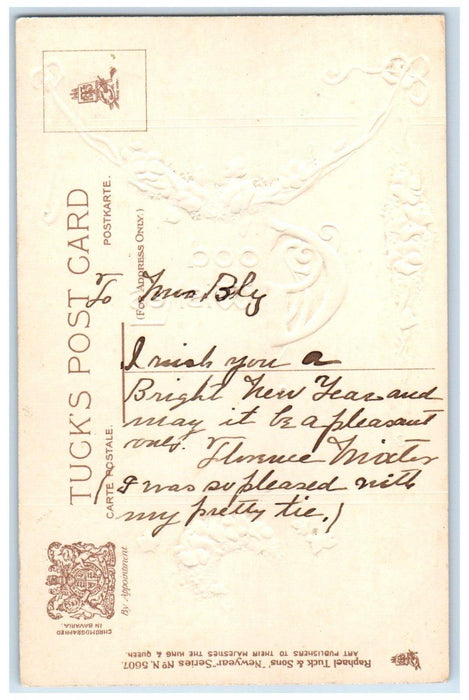 TUCK'S POST CARD
CARTE POSTALE.
POSTKARTE.
(FOR ADDRESS ONLY.)
To Mrs Bly
I wish you a
Bright New Year and
may it be a pleasant
one. Florence Mixter
I was so pleased with
my pretty tie.)
By Appointment
CHROMOGRAPHED
IN BAVARIA.
Raphael Tuck & Sons' "Newyear" Series No. N. 5607.
ART PUBLISHERS TO THEIR MAJESTIES THE KING & QUEEN.